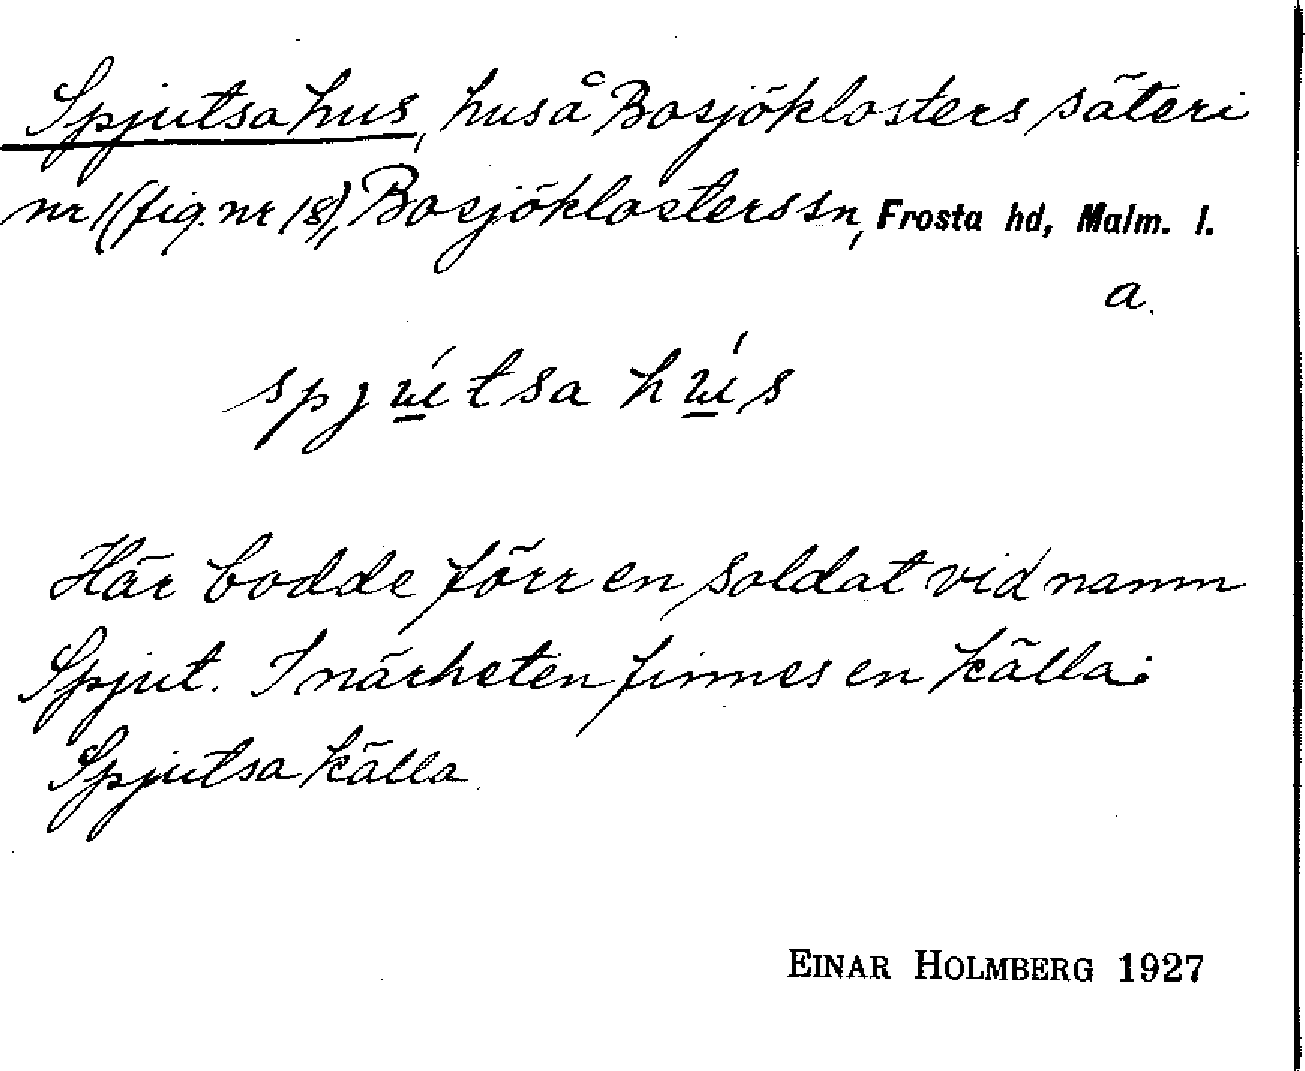 Spjutsahus, hus å Bosjöklosters säteri
nr 1 (fig. nr 18), Bosjöklosters sn, Frosta hd, Malm. l.
a.
spjútsa hús
Här bodde förr en soldat vid namn
Spjut. I närheten finnes en källa:
Spjutsa källa.
EINAR HOLMBERG 1927